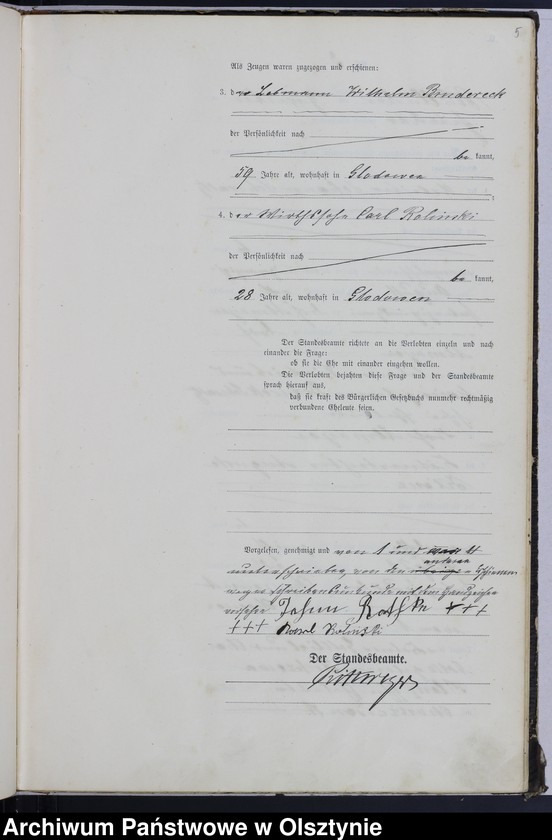 5
Als Zeugen waren zugezogen und erschienen:
3. der Lohmann Wilhelm Bondereck
der Persönlichkeit nach
be kannt,
59 Jahre alt, wohnhaft in Glodowen
;
4. der Wirthssohn Carl Rolinski
der Persönlichkeit nach
be kannt,
28 Jahre alt, wohnhaft in Glodowen
Der Standesbeamte richtete an die Verlobten einzeln und nach
einander die Frage:
ob sie die Ehe mit einander eingehen wollen.
Die Verlobten bejahten diese Frage und der Standesbeamte
sprach hierauf aus,
daß sie kraft des Bürgerlichen Gesetzbuchs nunmehr rechtmäßig
verbundene Eheleute seien.
Vorgelesen, genehmigt und von 1 und 4
anderen
unterschrieben, von den Erschienenen
wegen Schreibensunkunde mit dem Handzeichen
versehen Johan Rathke +++
+++ Karl Rolinski
Der Standesbeamte.
Archiwum Państwowe w Olsztynie